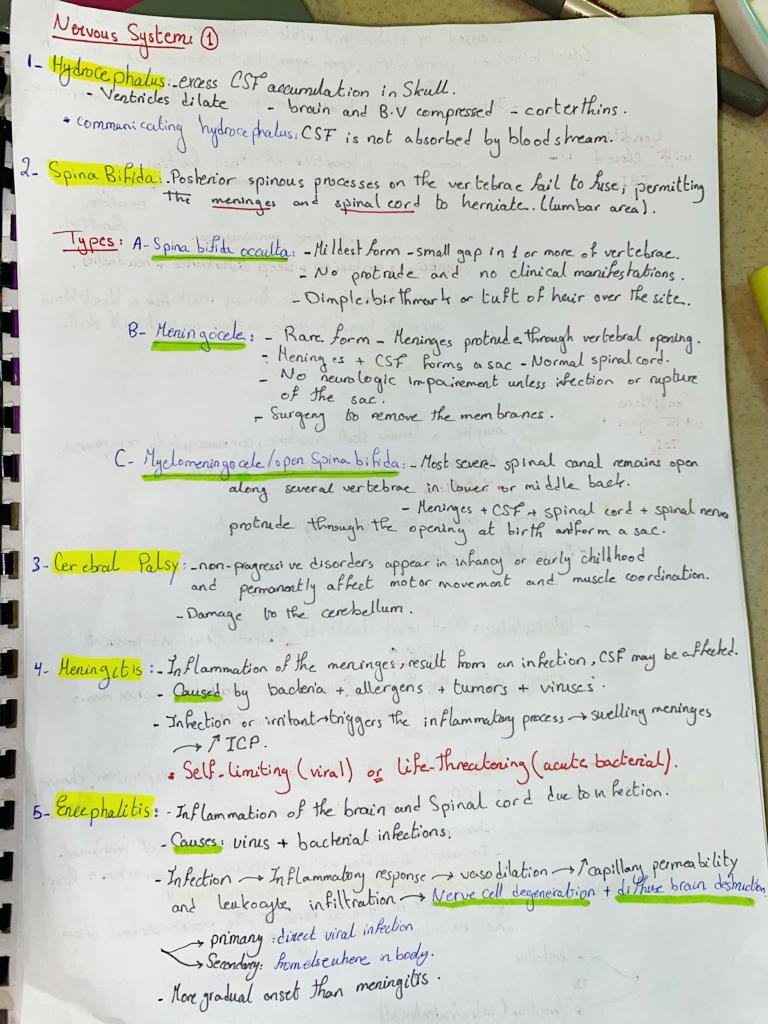 Nervous System: 1
1- Hydrocephalus:- excess CSF accumulation in Skull.
- Ventricles dilate - brain and B.V compressed - cortex thins.
• communicating hydrocephalus: CSF is not absorbed by bloodstream.
2- Spina Bifida:. Posterior spinous processes on the vertebrae fail to fuse, permitting
the meninges and spinal cord to herniate. (lumbar area).
Types: A- Spina bifida occulta: - Mildest form - small gap in 1 or more of vertebrae.
- No protrude and no clinical manifestations.
- Dimple, birthmark or tuft of hair over the site.
B- Meningocele: - Rare form - Meninges protrude through vertebral opening.
- Meninges + CSF forms a sac - Normal spinal cord.
- No neurologic impairement unless infection or rupture
of the sac.
- Surgery to remove the membranes.
C- Myelomeningocele/open Spina bifida: - Most severe - spinal canal remains open
along several vertebrae in lower or middle back.
- Meninges + CSF + spinal cord + spinal nerves
protrude through the opening at birth and form a sac.
3- Cerebral Palsy: - non-progressive disorders appear in infancy or early childhood
and permanently affect motor movement and muscle coordination.
- Damage to the cerebellum.
4- Meningitis:- Inflammation of the meninges, result from an infection, CSF may be affected.
- Caused by bacteria + allergens + tumors + viruses.
- Infection or irritant → triggers the inflammatory process → swelling meninges
→ ↑ ICP.
• Self-limiting (viral) or life-threatening (acute bacterial).
5- Encephalitis: - Inflammation of the brain and Spinal cord due to infection.
- Causes: virus + bacterial infections.
- Infection → Inflammatory response → vasodilation → ↑ capillary permeability
and leukocyte infiltration → Nerve cell degeneration + diffuse brain destruction
→ primary: direct viral infection
→ Secondary: from elsewhere in body.
- More gradual onset than meningitis.